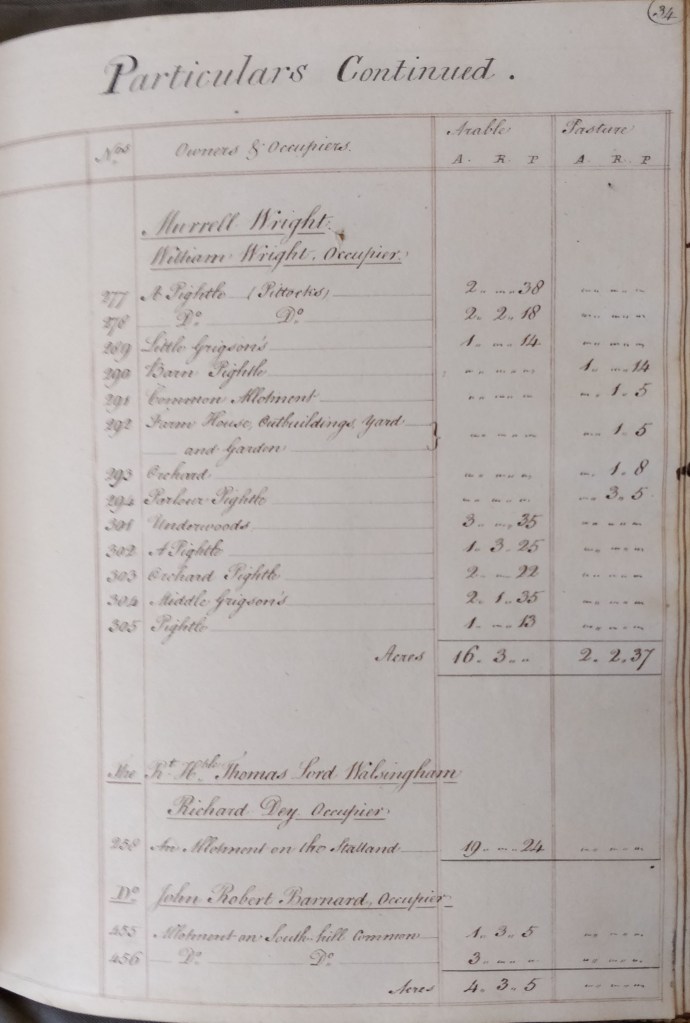 34
Particulars Continued.
Arable Pasture
Nos Owners & Occupiers. A. R. P A. R. P
Murrell Wright.
William Wright, Occupier.
277 A Pightle (Pittocks) 2. .. 38 .. .. ..
278 Do Do 2. 2. 18 .. .. ..
289 Little Grigson's 1. .. 14 .. .. ..
290 Barn Pightle .. .. .. 1. .. 14
291 Common Allotment .. .. .. .. 1. 5
292 Farm House, Outbuildings, Yard
and Garden } .. .. .. .. 1. 5
293 Orchard .. .. .. .. 1. 8
294 Parlour Pightle .. .. .. .. 3. 5
301 Underwoods 3. .. 35 .. .. ..
302 A Pightle 1. 3. 25 .. .. ..
303 Orchard Pightle 2. .. 22 .. .. ..
304 Middle Grigson's 2. 1. 35 .. .. ..
305 Pightle 1. .. 13 .. .. ..
Acres 16. 3. .. 2. 2. 37
The Rt. Hble Thomas Lord Walsingham
Richard Dey, Occupier
258 An Allotment on the Stalland 19 .. 24 .. .. ..
Do John Robert Barnard, Occupier.
455 Allotment on South hill Common 1. 3. 5 .. .. ..
456 Do Do 3. .. .. .. .. ..
Acres 4. 3. 5 .. .. ..